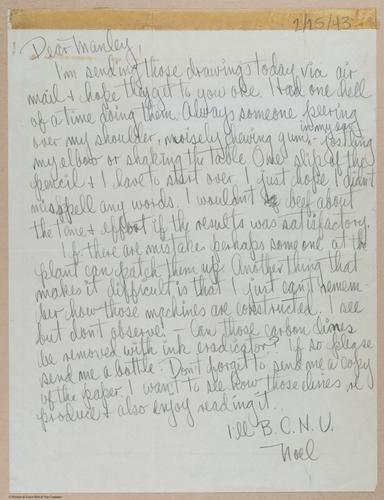 2/25/43
Dear Manley,
I'm sending those drawings today, via air
mail & hope they get to you oke. Had one hell
of a time doing them. Always someone peering
over my shoulder, noisely chewing gum in my ear, jostling
my elbow or shaking the table. One slip of the
pencil & I have to start over. I just hope I didn't
misspell any words. I wouldn't beef about
the time & effort if the results was satisfactory.
If there are mistakes perhaps someone at the
plant can patch them up. Another thing that
makes it difficult is that I just can't remem-
ber how those machines are constructed. I see
but don't observe! — Can those carbon lines
be removed with ink eradicator? If so please
send me a bottle. Don't forget to send me a copy
of the paper. I want to see how those lines re
produce & also enjoy reading it..
I'll B.C.N.U.
Noel